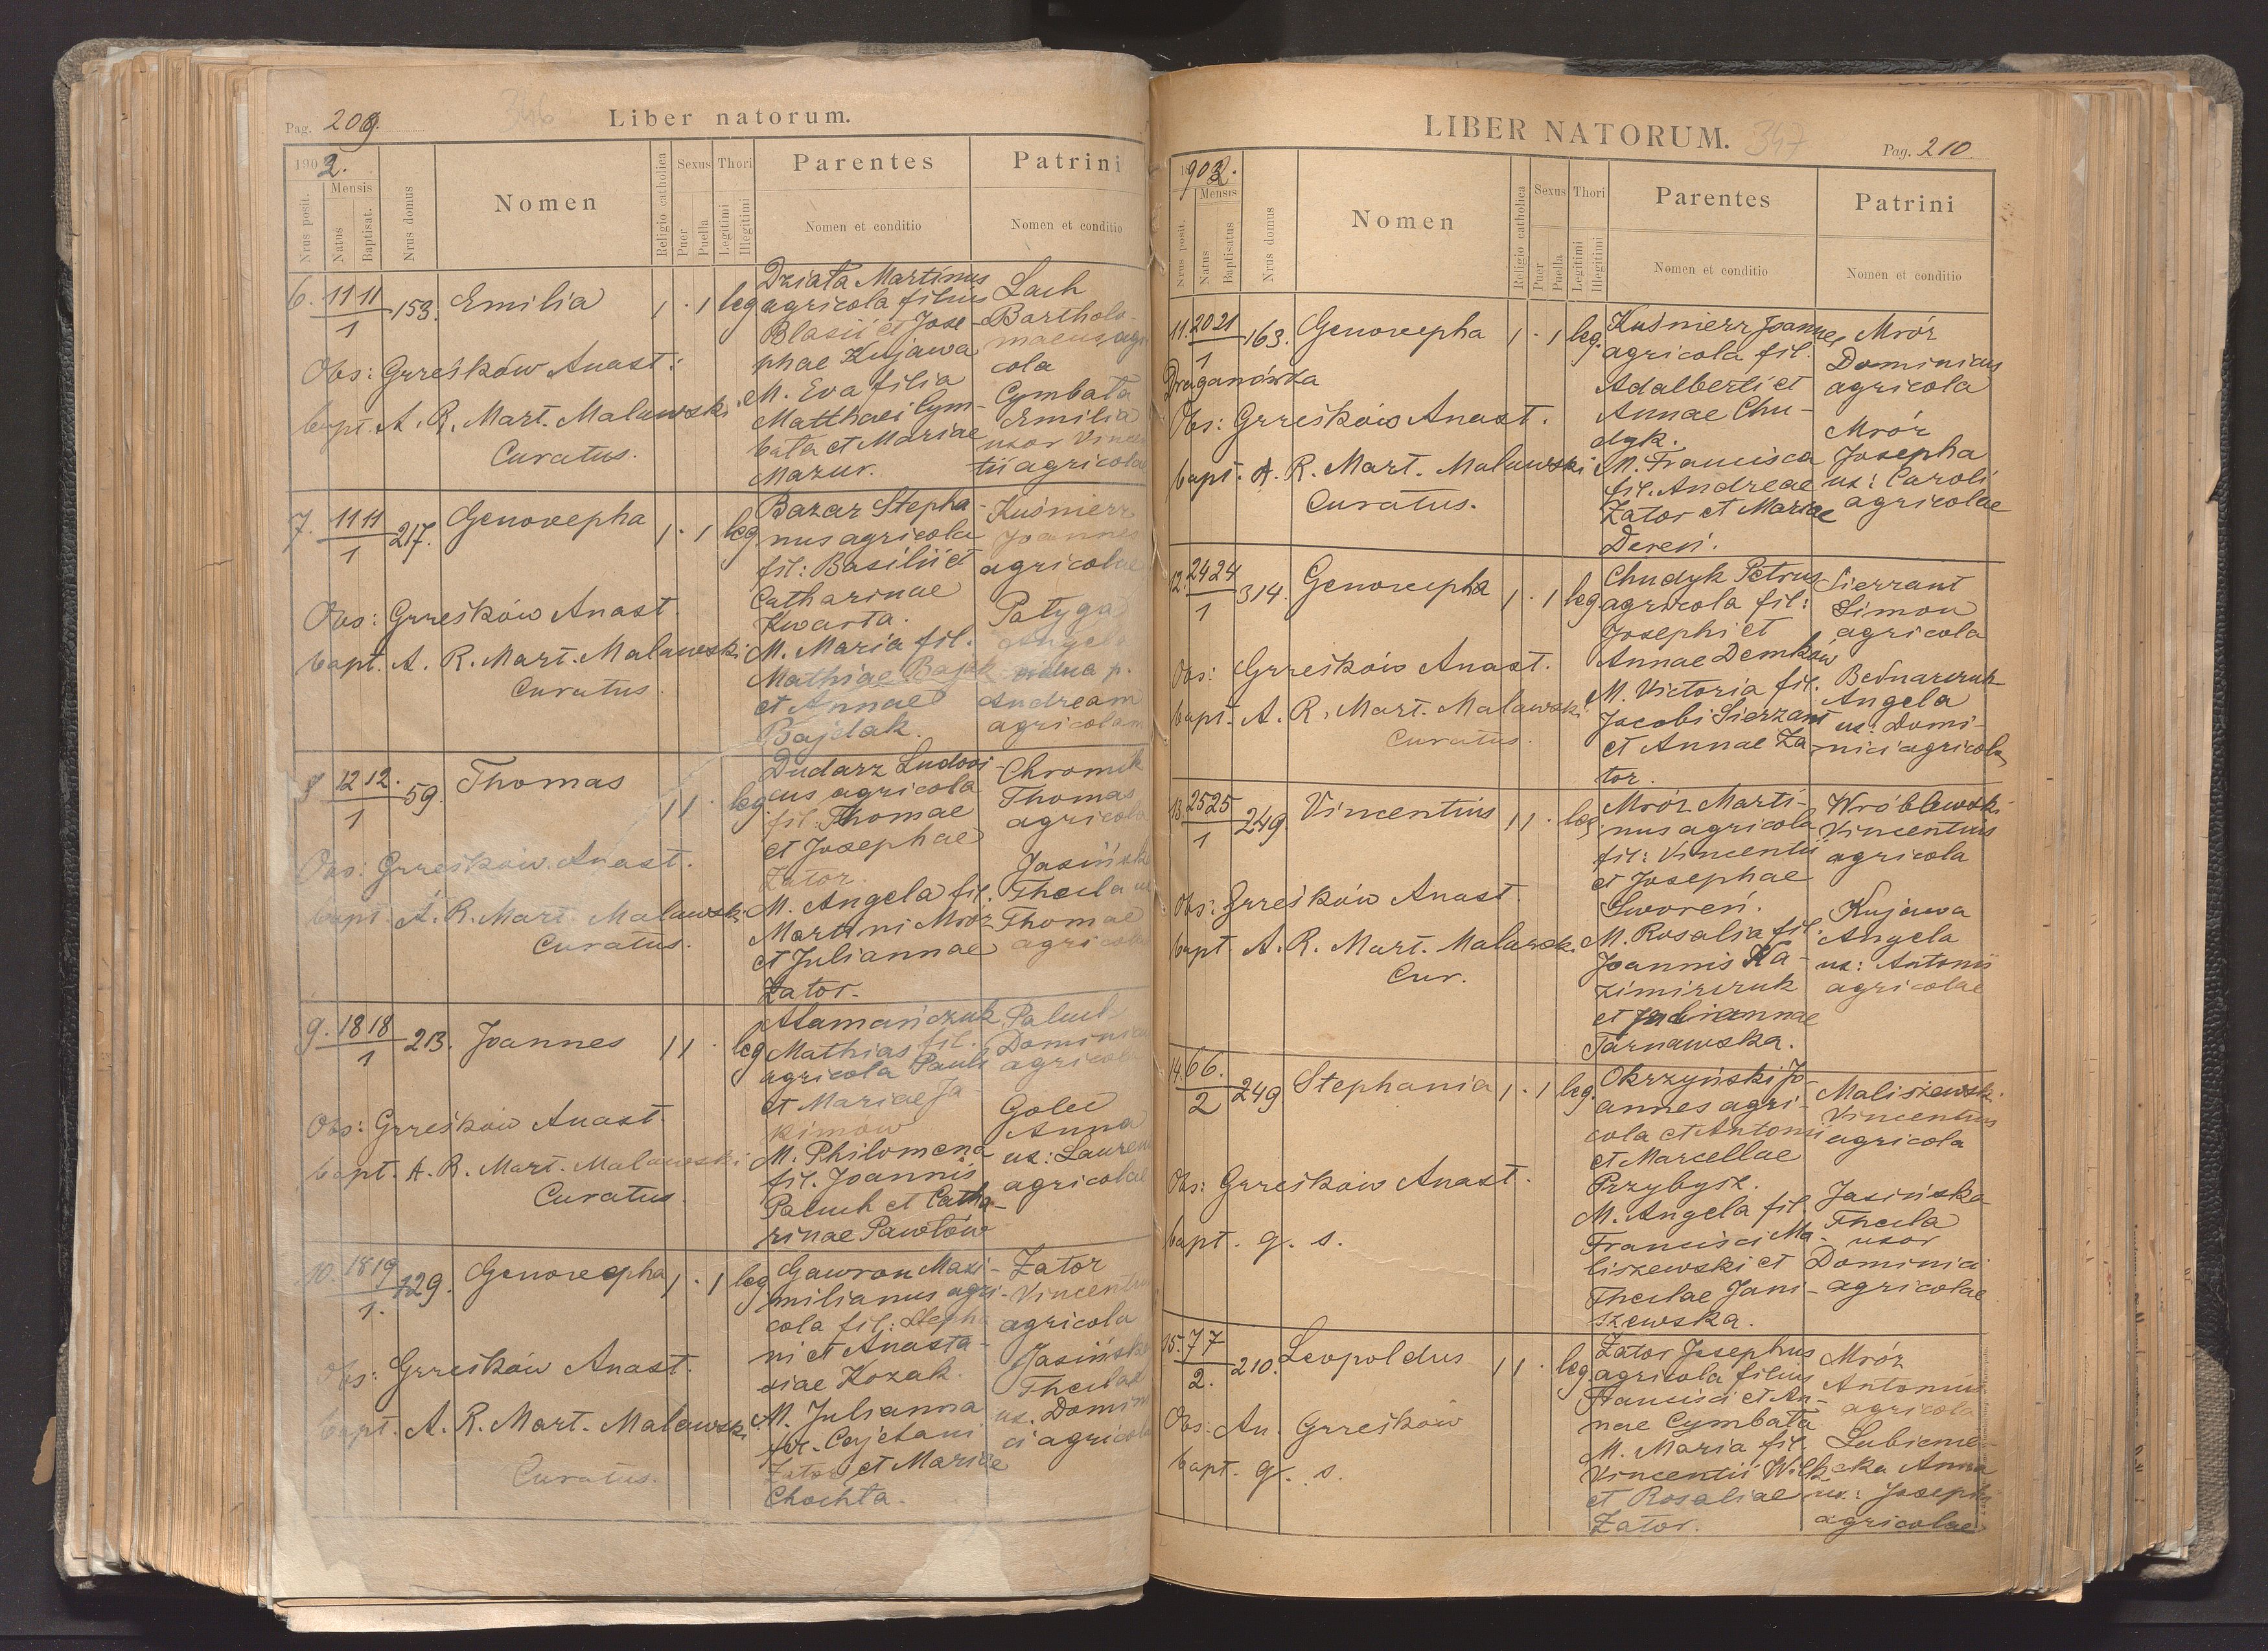 Pag. 209.
346
Liber natorum.
1902.
Nrus posit.
Mensis
Natus
Baptisat.
Nrus domus
Nomen
Religio catholica
Sexus
Puer
Puella
Thori
Legitimi
Illegitimi
Parentes
Nomen et conditio
Patrini
Nomen et conditio
6. 11 11
1
153. Emilia 1 . 1 leg
Obs: Grześków Anast:
bapt. A. R. Mart. Malawski
Curatus.
Działa Martinus
agricola filius
Blasii et Jose-
phae Kujawa
M. Eva filia
Matthaei Cym-
bała et Mariae
Mazur.
Lach
Bartholo-
maeus, agri
cola
Cymbała
Emilia
uxor Vincen
tii agricolae
7. 11 11
1
217. Genovepha 1 . 1 leg
Obs: Grześków Anast.
bapt. A. R. Mart. Malawski
Curatus.
Bazar Stepha-
nus agricola
fil: Basilii et
Catharinae
Kwarta.
M. Maria fil.
Mathiae Bajak
et Annae
Bajdak.
Kuśnierz
Joannes
agricola
Patyga
Angela
vidua p.
Andream
agricolam
8 12 12.
1
59. Thomas 1 1 . leg
Obs: Grześków Anast.
bapt. A. R. Mart. Malawski
Curatus.
Dudarz Ludovi-
cus agricola
fil: Thomae
et Josephae
Zator.
M. Angela fil.
Martini Mróz
et Juliannae
Zator.
Chromik
Thomas
agricola
Jasińska
Thecla ux
Thomae
agricolae
9. 18 18
1
213. Joannes 1 1 . leg
Obs: Grześków Anast.
bapt. A. R. Mart. Malawski
Curatus.
Atamańczuk
Mathias fil.
agricola Pauli
et Mariae Ja-
kimow
M. Philomena
fil. Joannis
Paluch et Catha-
rinae Pawłów
Paluch
Dominicus
agricola
Golec
Anna
ux: Laurentii
agricolae
10. 18 19
1.
129. Genovepha 1 . 1 leg
Obs: Grześków Anast.
bapt. A. R. Mart. Malawski
Curatus.
Gawron Maxi-
milianus agri-
cola fil: Stepha
ni et Anasta-
siae Kozak.
M. Julianna
fil. Cajetani
Zator et Mariae
Chochta.
Zator
Vincentius
agricola
Jasińska
Theclae
ux. Domini
ci agricolae
LIBER NATORUM.
347
Pag. 210.
1902.
Nrus posit.
Mensis
Natus
Baptisatus
Nrus domus
Nomen
Religio catholica
Sexus
Puer
Puella
Thori
Legitimi
Illegitimi
Parentes
Nomen et conditio
Patrini
Nomen et conditio
11. 20 21
1
163. Genovepha 1 . 1 leg.
Draganówka
Obs: Grześków Anast.
bapt. A. R. Mart. Malawski
Curatus.
Kuśnierz Joannes
agricola fil.
Adalberti et
Annae Chu-
dyk.
M. Francisca
fil. Andreae
Zator et Mariae
Dereń.
Mróz
Dominicus
agricola
Mróz
Josepha
ux: Caroli
agricolae
12. 24 24
1
314. Genovepha 1 . 1 leg
Obs: Grześków Anast.
bapt. A. R. Mart. Malawski
Curatus.
Chudyk Petrus
agricola fil:
Josephi et
Annae Demków
M. Victoria fil.
Jacobi Sierzant
et Annae Za-
tor.
Sierzant
Simon
agricola
Bednarczuk
Angela
ux: Domi-
nici agricola
13. 25 25
1
249. Vincentius 1 1 . leg
Obs: Grześków Anast.
bapt A. R. Mart. Malawski
Cur.
Mróz Marti-
nus agricola
fil: Vincentii
et Josephae
Sworeń.
M. Rosalia fil.
Joannis Ka-
zimirczuk
et Juliannae
Tarnawska.
Wróblewski
Vincentius
agricola
Kujawa
Angela
ux: Antonii
agricolae
14. 6 6.
2
249. Stephania 1 . 1 leg.
Obs: Grześków Anast.
bapt. q. s.
Okrzyński Jo-
annes agri-
cola et Antonii
et Marcellae
Przybysz.
M. Angela fil.
Francisci Ma-
liszewski et
Theclae Jani-
szewska.
Maliszewski
Vincentius
agricola
Jasińska
Thecla
uxor
Dominici
agricolae
15. 7 7
2.
210. Leopoldus 1 1 . leg.
Obs: An. Grześków
bapt. q. s.
Zator Josephus
agricola filius
Francisci et An-
nae Cymbała
M. Maria fil.
Vincentii Wilk
et Rosaliae
Zator.
Mróz
Antonius
agricola
Lubiene-
cka Anna
ux.: Josephi
agricolae